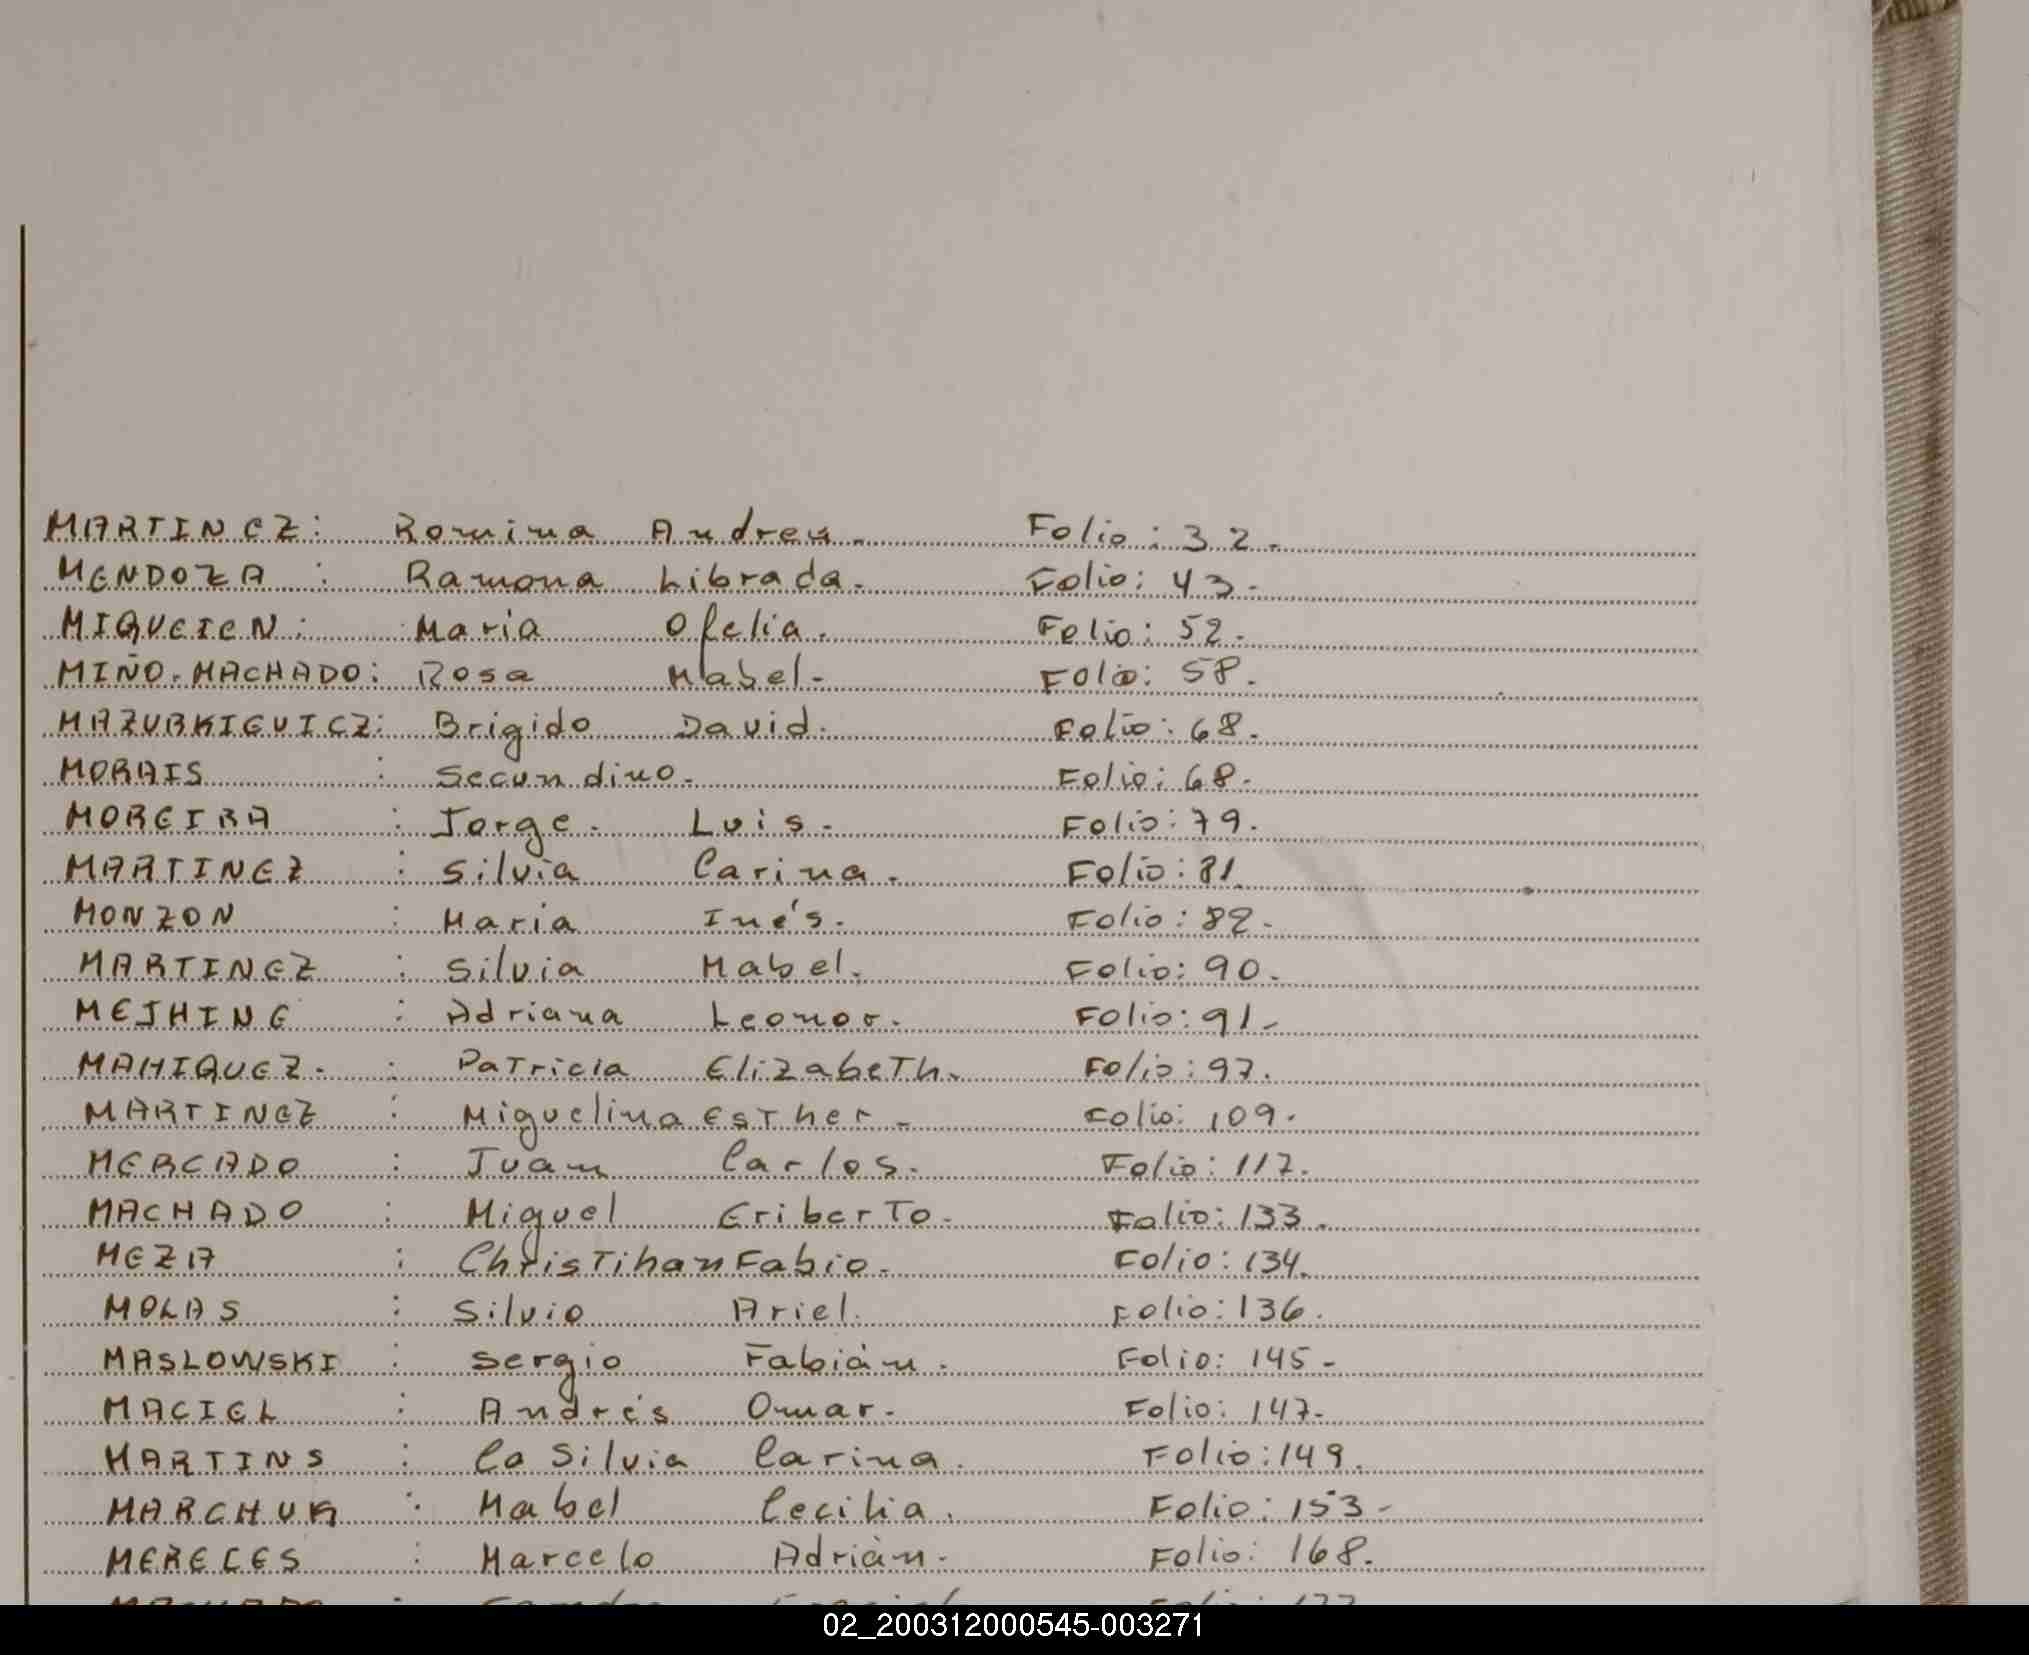 MARTINEZ: Romina Andrea. Folio: 32.
MENDOZA : Ramona Librada. Folio: 43.
MIQUEIEN: Maria Ofelia. Folio: 52.
MIÑO. MACHADO: Rosa Mabel. Folio: 58.
MAZURKIEVICZ: Brigido David. Folio: 68.
MORAIS : Secundino. Folio: 68.
MOREIRA : Jorge. Luis. Folio: 79.
MARTINEZ : Silvia Carina. Folio: 81.
MONZON : Maria Inés. Folio: 82.
MARTINEZ : Silvia Mabel. Folio: 90.
MEJHING : Adriana Leonor. Folio: 91.
MAHIQUEZ. : Patricia Elizabeth. Folio: 97.
MARTINEZ : Miguelina Esther. Folio: 109.
MERCADO : Juan Carlos. Folio: 117.
MACHADO : Miguel Eriberto. Folio: 133.
MEZA : Christihan Fabio. Folio: 134.
MOLAS : Silvio Ariel. Folio: 136.
MASLOWSKI : Sergio Fabián. Folio: 145-
MACIEL : Andrés Omar. Folio: 147.
MARTINS : Co Silvia Carina. Folio: 149.
MARCHUK : Mabel Cecilia. Folio: 153-
MERELES : Marcelo Adrián. Folio: 168.
02_200312000545-003271